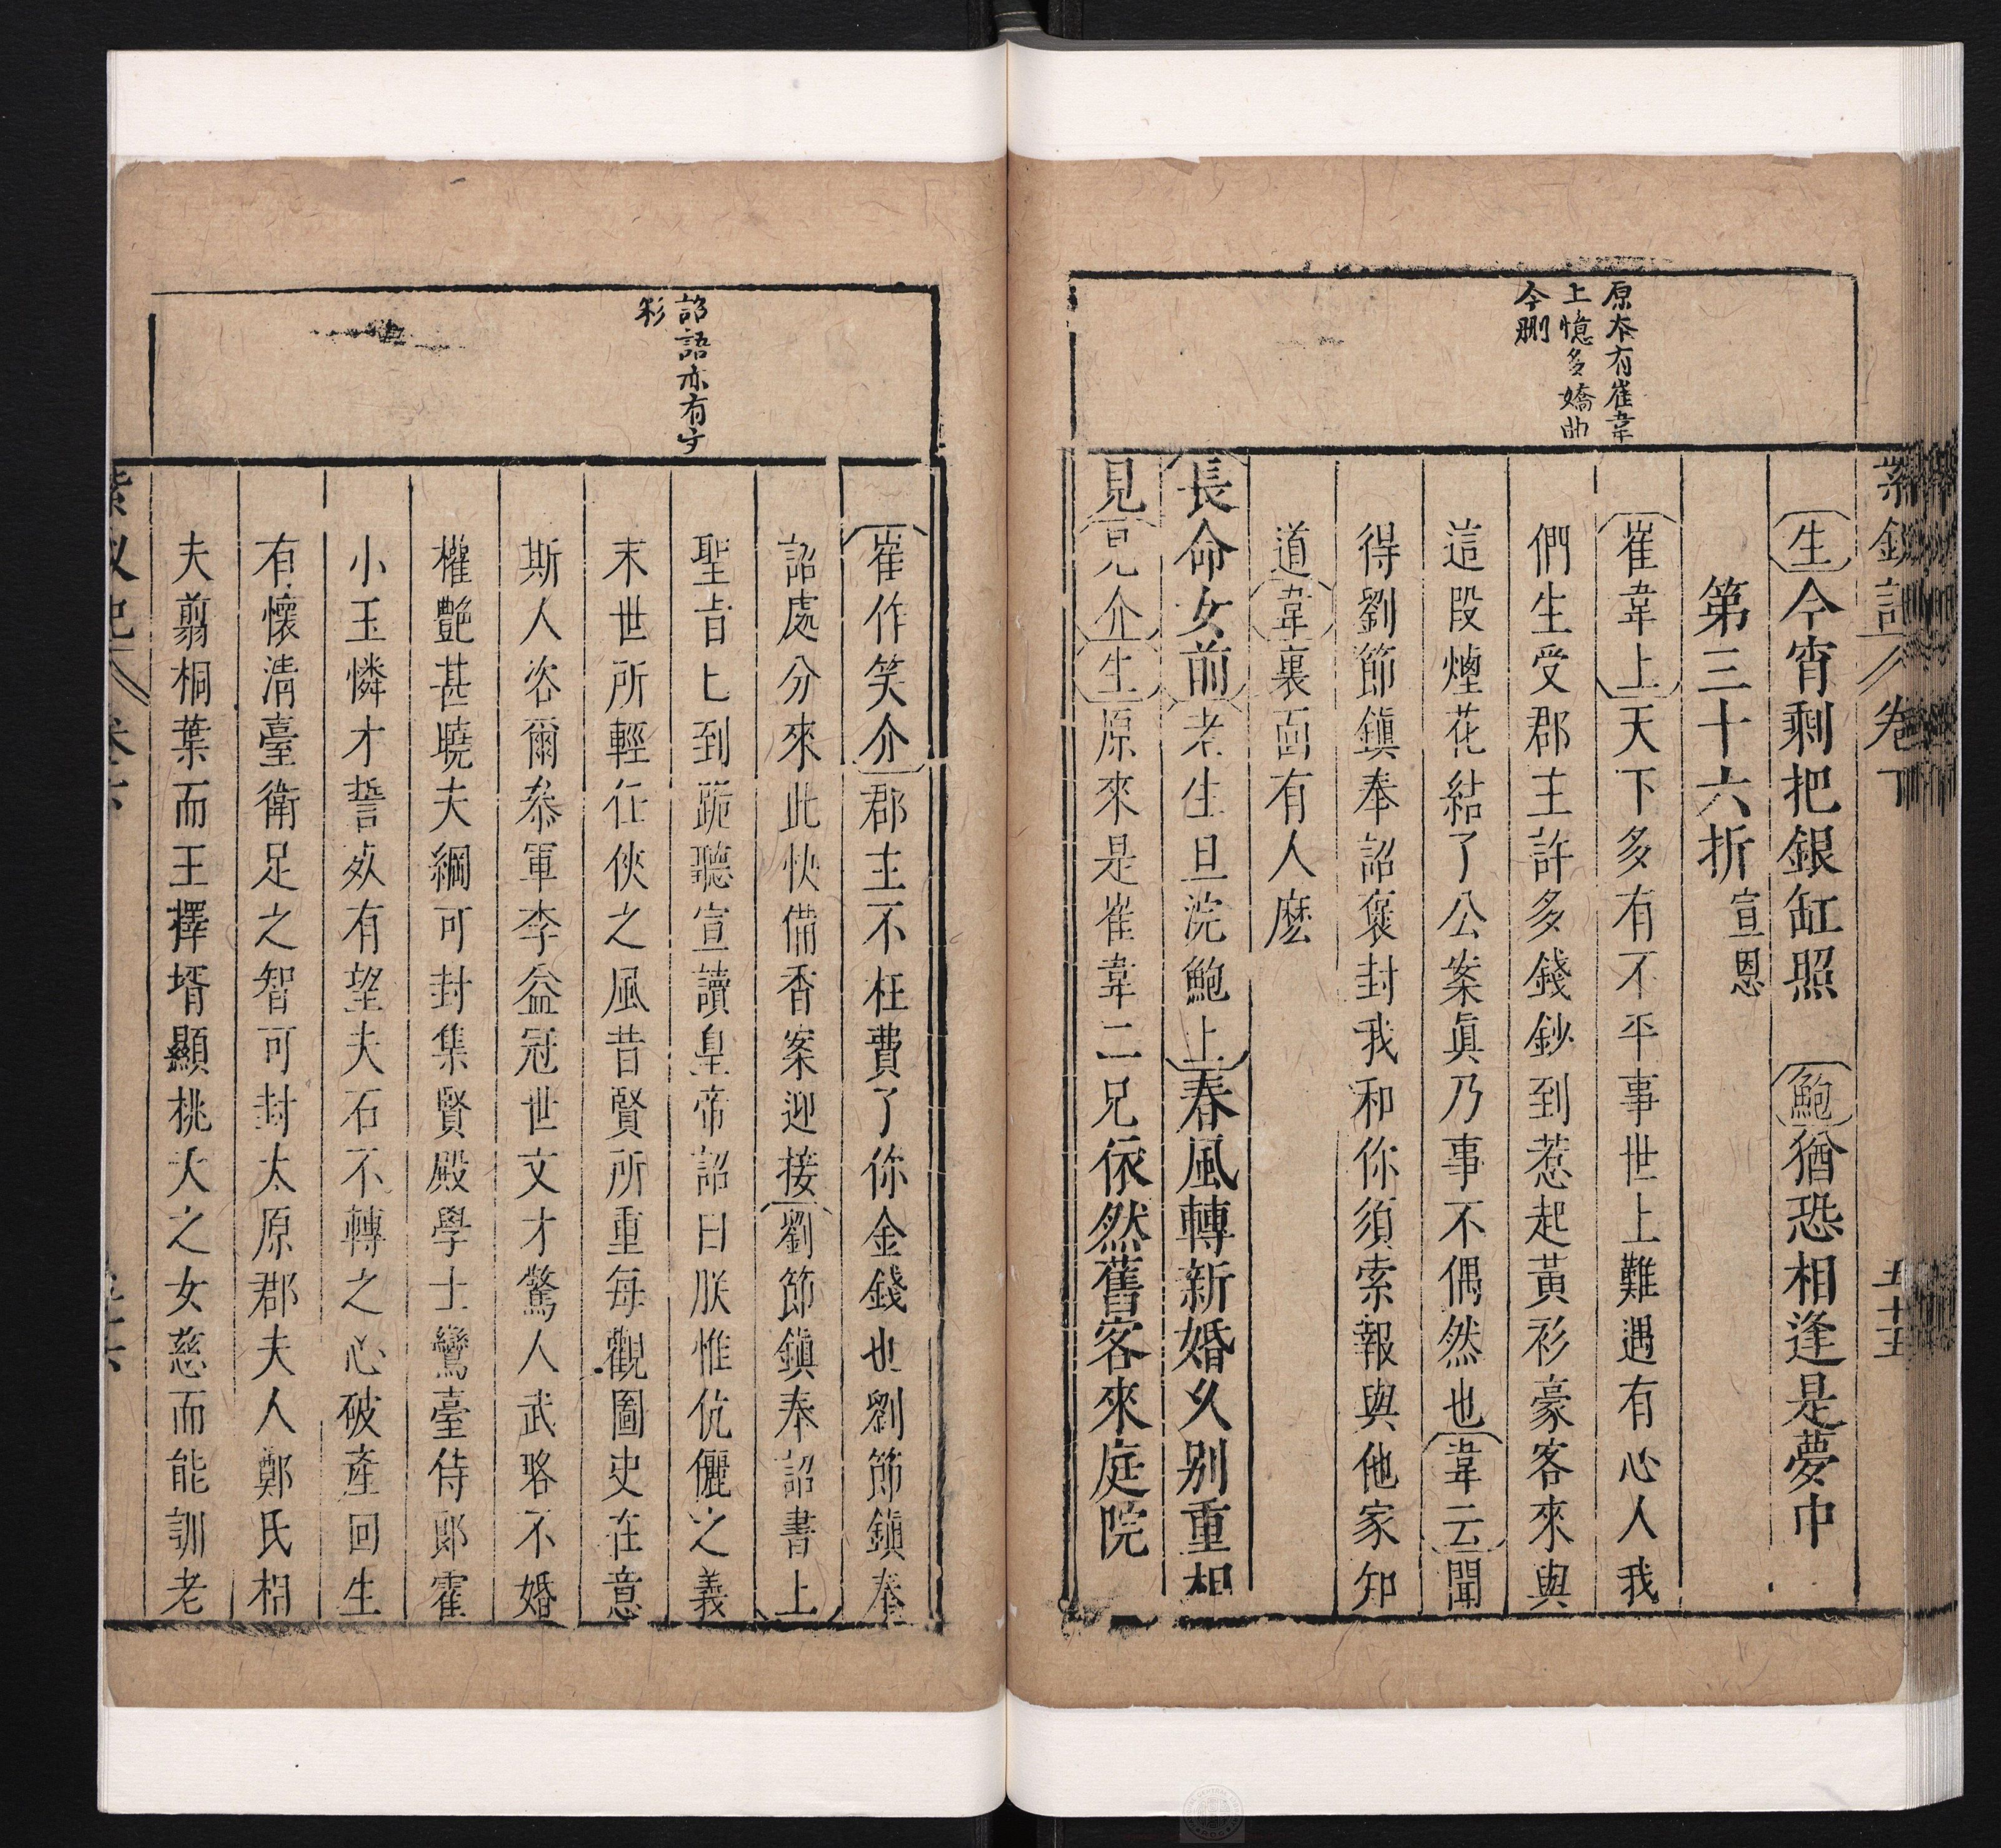 紫釵記 卷下 五十五
原本有崔韋
上憶多嬌曲
今刪
生今宵剩把銀缸照 鮑猶恐相逢是夢中
第三十六折 宣恩
崔韋上天下多有不平事世上難遇有心人我
們生受郡主許多錢鈔到惹起黃衫豪客來與
這段煙花結了公案眞乃事不偶然也韋云聞
得劉節鎮奉詔褒封我和你須索報與他家知
道韋裏面有人麽
長命女前老生旦浣鮑上春風轉新婚久别重相
見見介生原來是崔韋二兄依然舊客來庭院
詔語亦有字
彩
崔作笑介郡主不枉費了你金錢也劉節鎮奉
詔處分來此快備香案迎接劉節鎮奉詔書上
聖旨匕到跪聽宣讀皇帝詔曰朕惟伉儷之義
末世所輕任俠之風昔賢所重每觀圖史在意
斯人咨爾叅軍李益冠世文才驚人武略不婚
權艷甚曉夫綱可封集賢殿學士鸞臺侍郎霍
小玉憐才誓死有望夫石不轉之心破產回生
有懷清臺衛足之智可封太原郡夫人鄭氏相
夫翦桐葉而王擇壻顯桃夭之女慈而能訓老